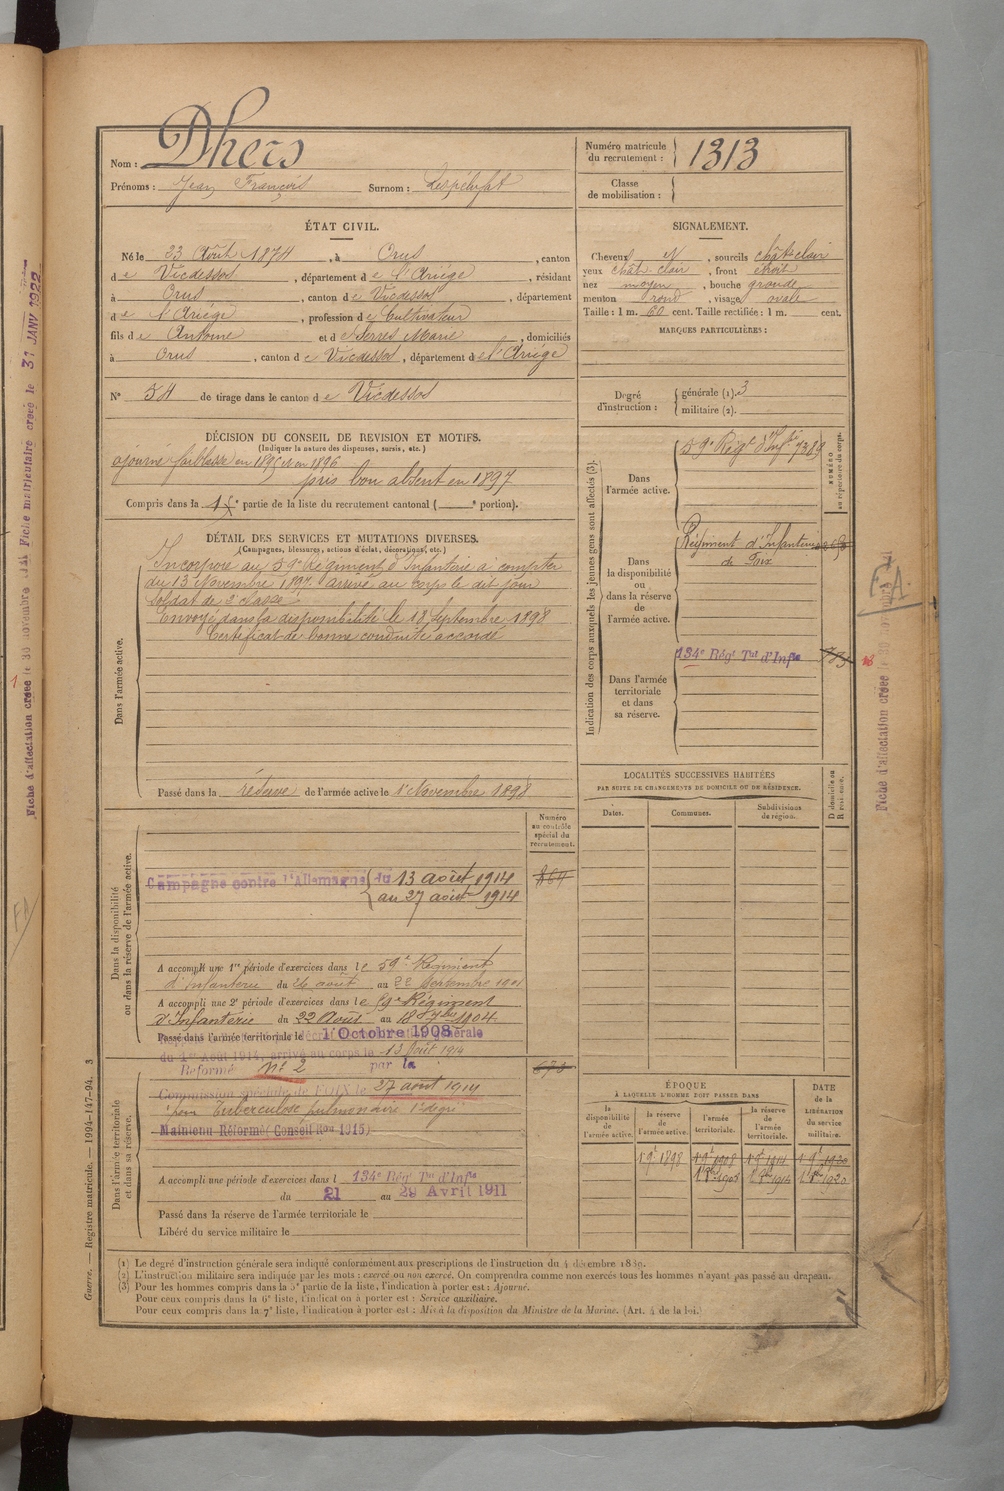 Nom : Dhers
Prénoms : Jean François Surnom :
Numéro matricule du recrutement : 1313
Classe de mobilisation :
ÉTAT CIVIL.
Né le 23 Août 1874, à Orus, canton
de Vicdessos, département de l'Ariège, résidant
à Orus, canton de Vicdessos, département
de l'Ariège, profession de Cultivateur
fils de Antoine et de Serres Marie, domiciliés
à Orus, canton de Vicdessos, département de l'Ariège
N° 54 de tirage dans le canton de Vicdessos
SIGNALEMENT.
Cheveux N, sourcils chât clair
yeux chât. clair, front étroit
nez moyen, bouche grande
menton rond, visage ovale
Taille : 1 m. 60 cent. Taille rectifiée : 1 m. cent.
MARQUES PARTICULIÈRES :
Degré d'instruction : générale (1). 3
militaire (2).
DÉCISION DU CONSEIL DE REVISION ET MOTIFS.
(Indiquer la nature des dispenses, sursis, etc.)
ajourné faiblesse en 1895 et en 1896
pris bon absent en 1897
Compris dans la 1e partie de la liste du recrutement cantonal ( e portion).
DÉTAIL DES SERVICES ET MUTATIONS DIVERSES.
(Campagnes, blessures, actions d'éclat, décorations, etc.)
Dans l'armée active.
Incorporé au 59e Régiment d'Infanterie à compter
du 13 Novembre 1897. arrivé au corps le dit jour
Soldat de 2e classe
Envoyé dans la disponibilité le 18 Septembre 1898
Certificat de bonne conduite accordé
Passé dans la réserve de l'armée active le 1 Novembre 1898
Indication des corps auxquels les jeunes gens sont affectés (3).
NUMÉRO au répertoire du corps.
Dans l'armée active.
59e Régt d'Infie 7389
Dans la disponibilité ou dans la réserve de l'armée active.
Régiment d'Infanterie
de Foix
Dans l'armée territoriale et dans sa réserve.
134e Régt Tal d'Infie
LOCALITÉS SUCCESSIVES HABITÉES
PAR SUITE DE CHANGEMENTS DE DOMICILE OU DE RÉSIDENCE.
Dates. Communes. Subdivisions de région. D domicile ou R résidence.
Dans la disponibilité ou dans la réserve de l'armée active.
Numéro au contrôle spécial du recrutement.
Campagne contre l'Allemagne du 13 août 1914
au 27 août 1914
A accompli une 1re période d'exercices dans le 59e Régiment
d'Infanterie du 26 août au 22 Septembre 1901
A accompli une 2e période d'exercices dans le 59e Régiment
d'Infanterie du 22 Août au 18 7bre 1904
Passé dans l'armée territoriale le 1 Octobre 1908
du 1er Août 1914, arrivé au corps le 13 Août 1914
Dans l'armée territoriale et dans sa réserve.
Réformé n° 2 par la
Commission spéciale de FOIX le 27 août 1914
pour Tuberculose pulmonaire 1er degré
Maintenu Réformé (Conseil Ron 1915)
A accompli une période d'exercices dans l 134e Régt Tal d'Infie
du 21 au 29 Avril 1911
Passé dans la réserve de l'armée territoriale le
Libéré du service militaire le
ÉPOQUE
À LAQUELLE L'HOMME DOIT PASSER DANS
la disponibilité de l'armée active. la réserve de l'armée active. l'armée territoriale. la réserve de l'armée territoriale.
DATE de la LIBÉRATION du service militaire.
(1) Le degré d'instruction générale sera indiqué conformément aux prescriptions de l'instruction du 4 décembre 1889.
(2) L'instruction militaire sera indiquée par les mots : exercé ou non exercé. On comprendra comme non exercés tous les hommes n'ayant pas passé au drapeau.
(3) Pour les hommes compris dans la 5e partie de la liste, l'indication à porter est : Ajourné.
Pour ceux compris dans la 6e liste, l'indication à porter est : Service auxiliaire.
Pour ceux compris dans la 7e liste, l'indication à porter est : Mis à la disposition du Ministre de la Marine. (Art. 4 de la loi.)
Guerre. — Registre matricule. — 1994-147-94. 3
Fiche matriculaire créée le 31 JANV 1922